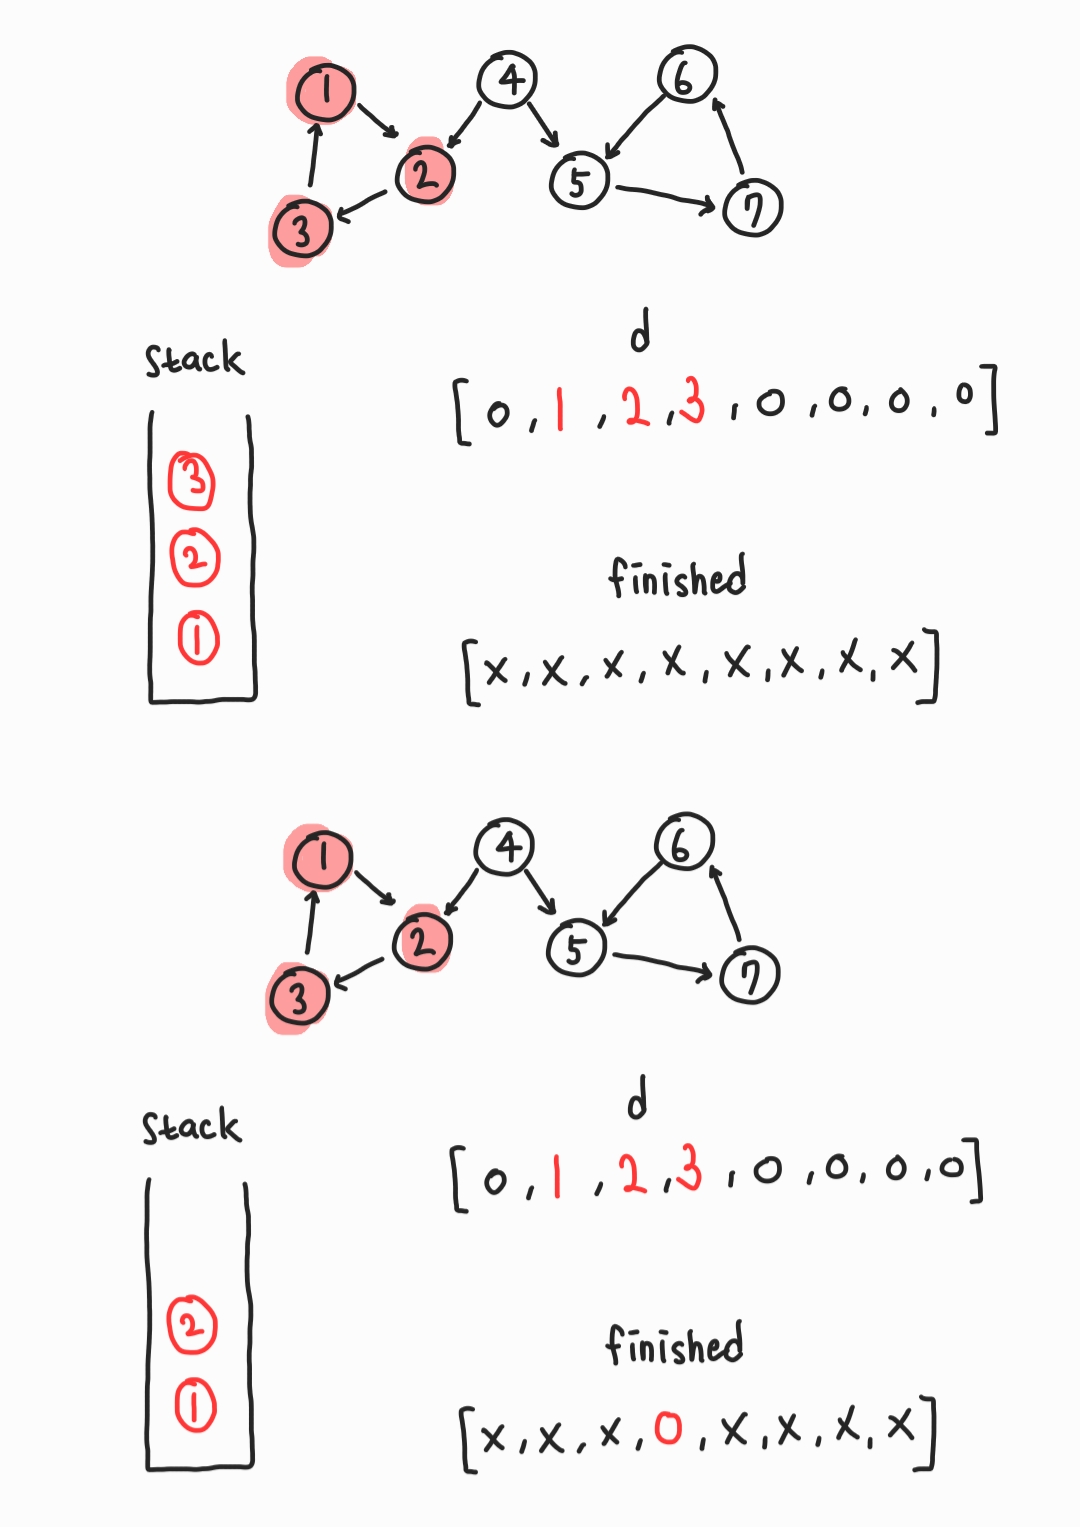 1 4 6
2 5
3 7
d
Stack
[0, 1, 2, 3, 0, 0, 0, 0]
3
2
finished
1
[x, x, x, x, x, x, x, x]
1 4 6
2 5
3 7
d
Stack
[0, 1, 2, 3, 0, 0, 0, 0]
2
finished
1
[x, x, x, 0, x, x, x, x]